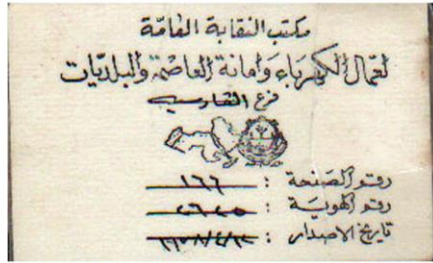 مكتب النقابة العامة
لعمال الكهرباء وأمانة العاصمة والبلديات
فرع القادسية
رقم الصفحة : ١٦٦
رقم الهوية :
تاريخ الاصدار :